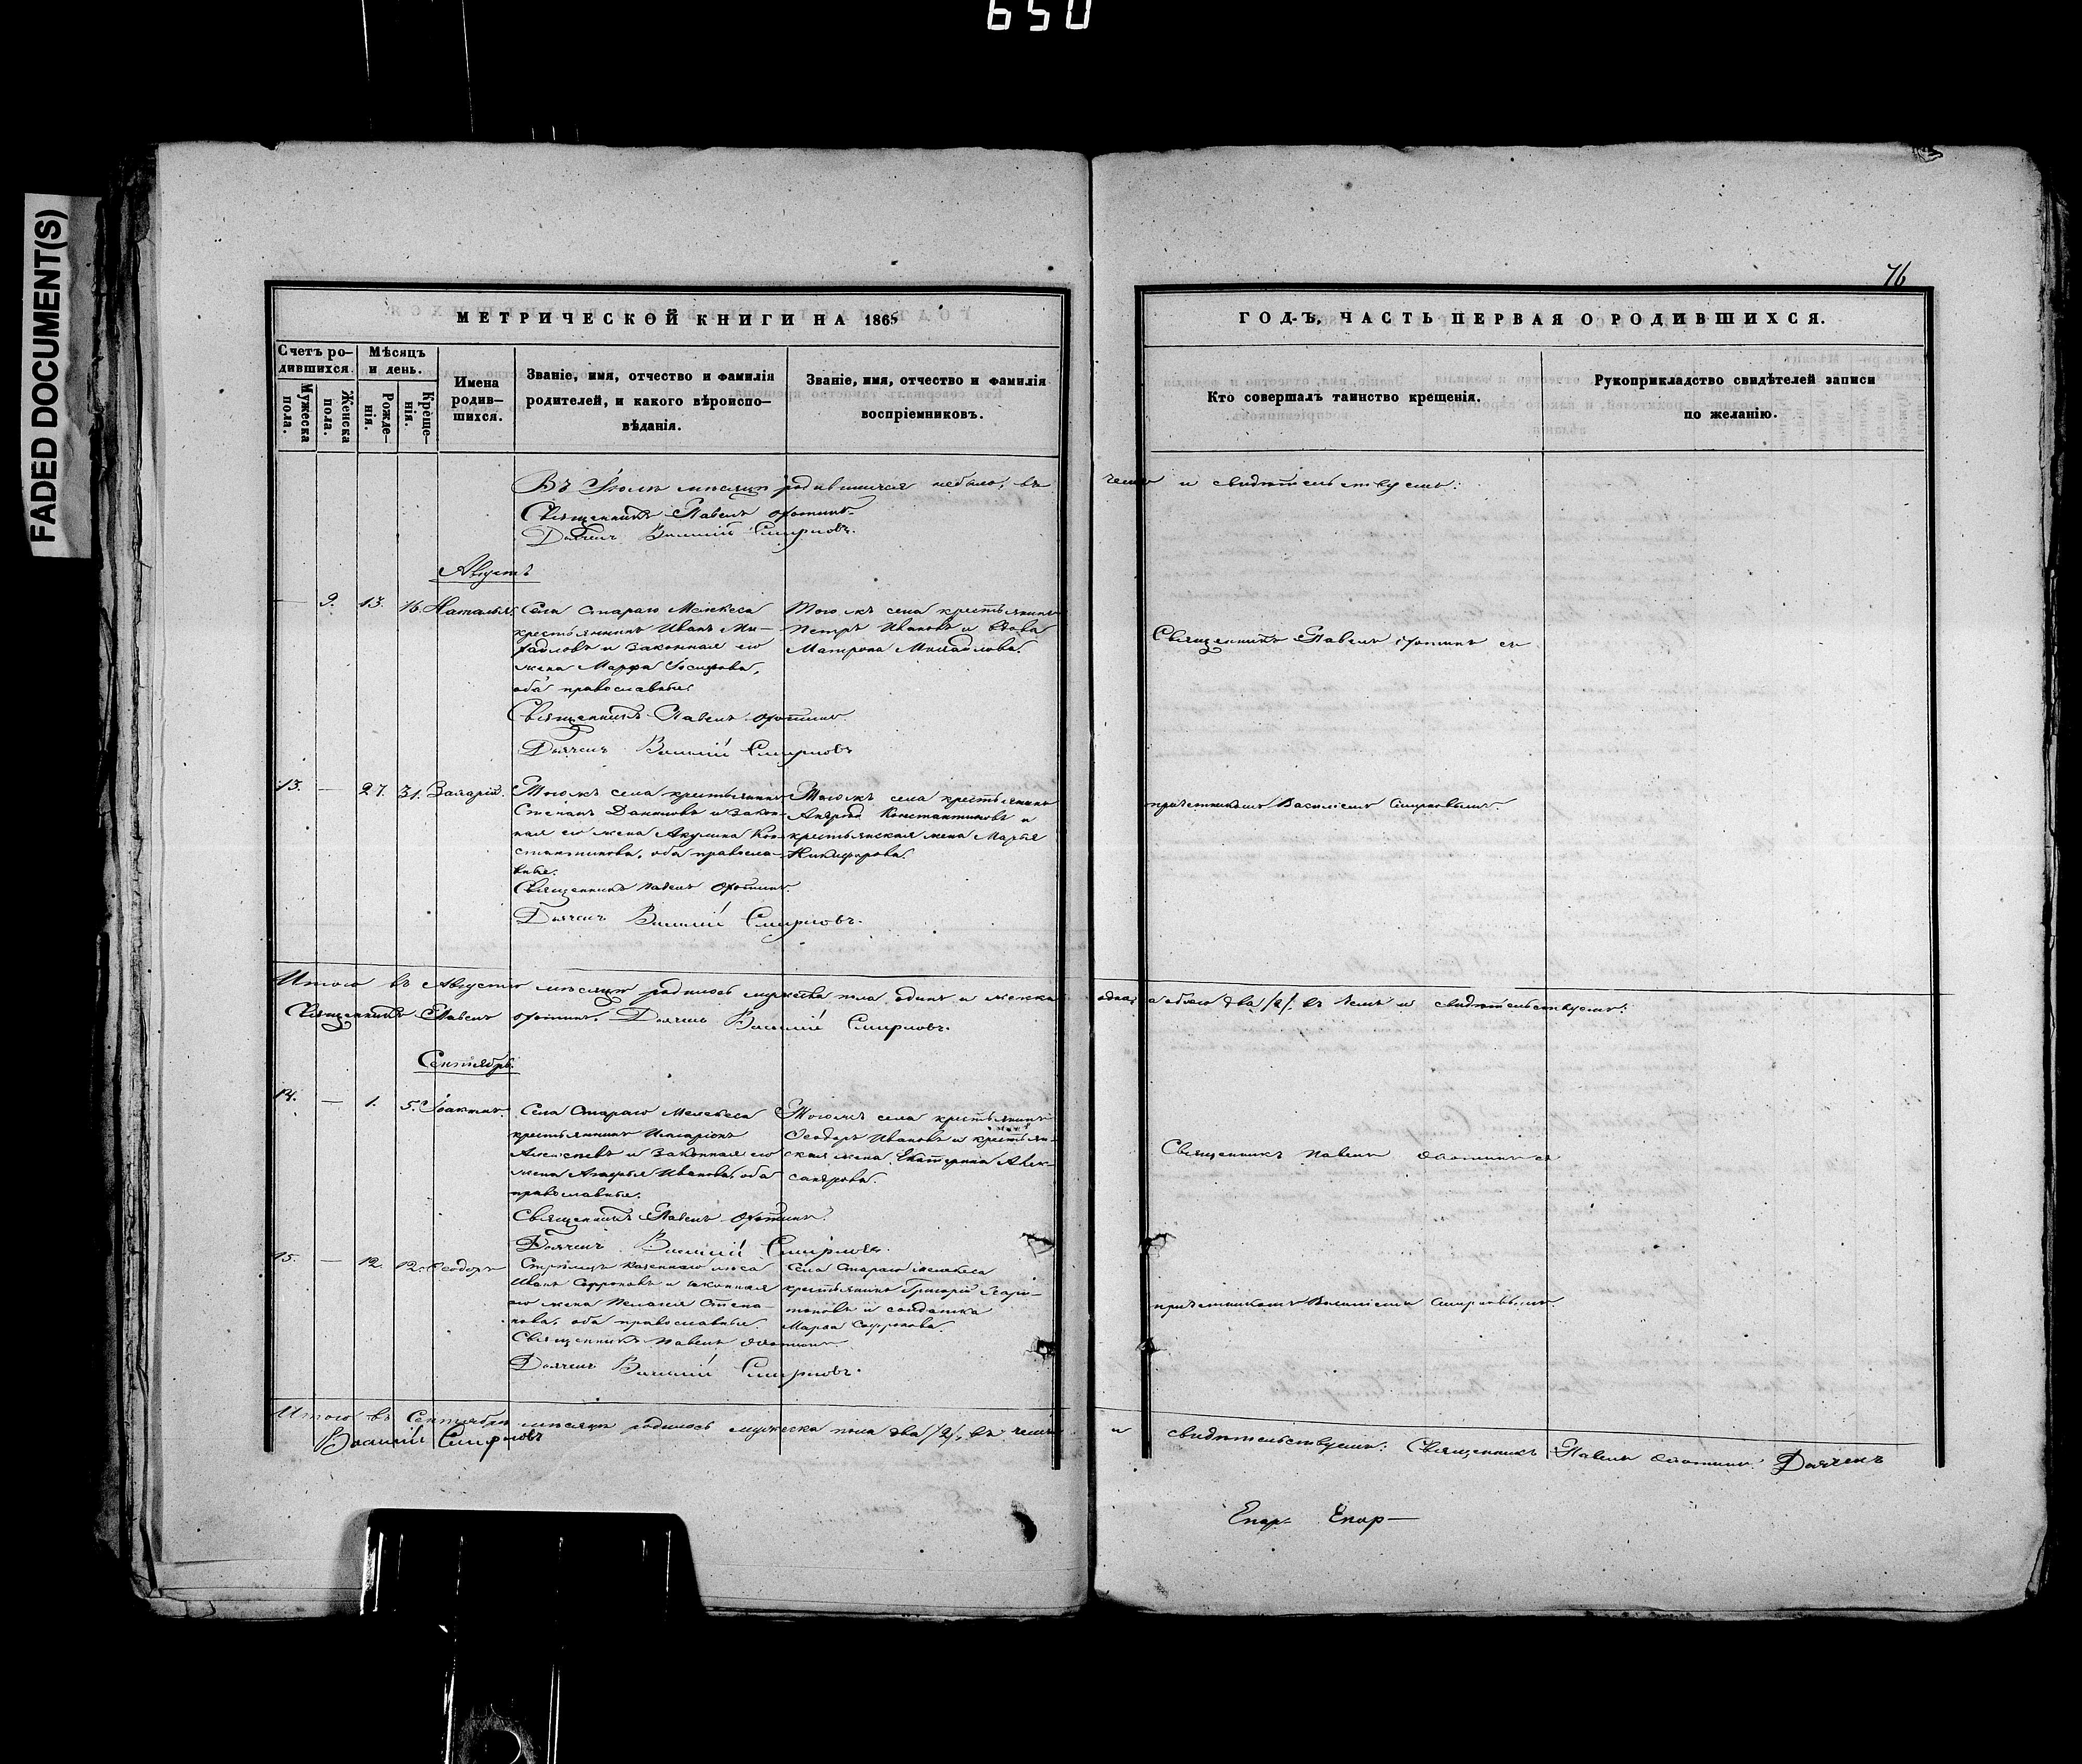 650
FADED DOCUMENT(S)
76
МЕТРИЧЕСКОЙ КНИГИ НА 1865
ГОДЪ, ЧАСТЬ ПЕРВАЯ О РОДИВШИХСЯ.
Счетъ ро–
дившихся.
Мужеска пола.
Женска пола.
Мѣсяцъ и день.
Рожде–нія.
Креще–нія.
Имена
родив–
шихся.
Званіе, имя, отчество и фамилія
родителей, и какого вѣроиспо–
вѣданія.
Званіе, имя, отчество и фамилія
воспріемниковъ.
Кто совершалъ таинство крещенія.
Рукоприкладство свидѣтелей записи
по желанію.
Въ Іюлѣ мѣсяцѣ родившихся небыло, въ чемъ и свидѣтельствуемъ:
Священникъ Павелъ Охотинъ
Дьячекъ Василій Смирновъ.
Августъ
— 9. 13. 16. Наталья
Села Стараго Мелекеса
крестьянинъ Иванъ Ми–
хайловъ и законная его
жена Марфа Іосифова,
оба православные
Священникъ Павелъ Охотинъ
Дьячекъ Василій Смирновъ
Того жъ села крестьянинъ
Петръ Ивановъ и вдова
Матрона Михайлова.
Священникъ Павелъ Охотинъ съ
13. — 27. 31. Захарій.
Того жъ села крестьянинъ
Степанъ Даниловъ и закон–
ная его жена Акулина Кон–
стантинова, оба правосла–
вные.
Священникъ Павелъ Охотинъ.
Дьячекъ Василій Смирновъ.
Того жъ села крестьянинъ
Андрей Константиновъ и
крестьянская жена Марья
Никифорова.
причетникомъ Василіемъ Смирновымъ
Итого въ Августѣ мѣсяцѣ родилось мужеска пола одинъ и женска одна, а обоего два /2/. въ чемъ и свидѣтельствуемъ:
Священникъ Павелъ Охотинъ. Дьячекъ Василій Смирновъ.
Сентябрь.
14. — 1. 5. Іоакимъ.
Села Стараго Мелекеса
крестьянинъ Иларіонъ
Алексѣевъ и законная его
жена Ивановна, оба
православные.
Священникъ Павелъ Охотинъ
Дьячекъ Василій Смирновъ.
Того жъ села крестьянинъ
Ѳеодоръ Ивановъ и крестьян–
ская жена Екатерина Алек–
сандрова.
Священникъ Павелъ Охотинъ съ
15. — 12. 12. Ѳеодоръ
Стрѣлецъ казеннаго лѣса
Иванъ Софроновъ и законная
его жена Пелагея Степа–
нова, оба православные.
Священникъ Павелъ Охотинъ
Дьячекъ Василій Смирновъ.
Села Стараго Мелекеса
крестьянинъ Григорій Хари–
тоновъ и солдатка
Марѳа Софронова.
причетникомъ Василіемъ Смирновымъ.
Итого въ Сентябрѣ мѣсяцѣ родилось мужеска пола два /2/, въ чемъ и свидѣтельствуемъ: Священникъ Павелъ Охотинъ. Дьячекъ
Василій Смирновъ